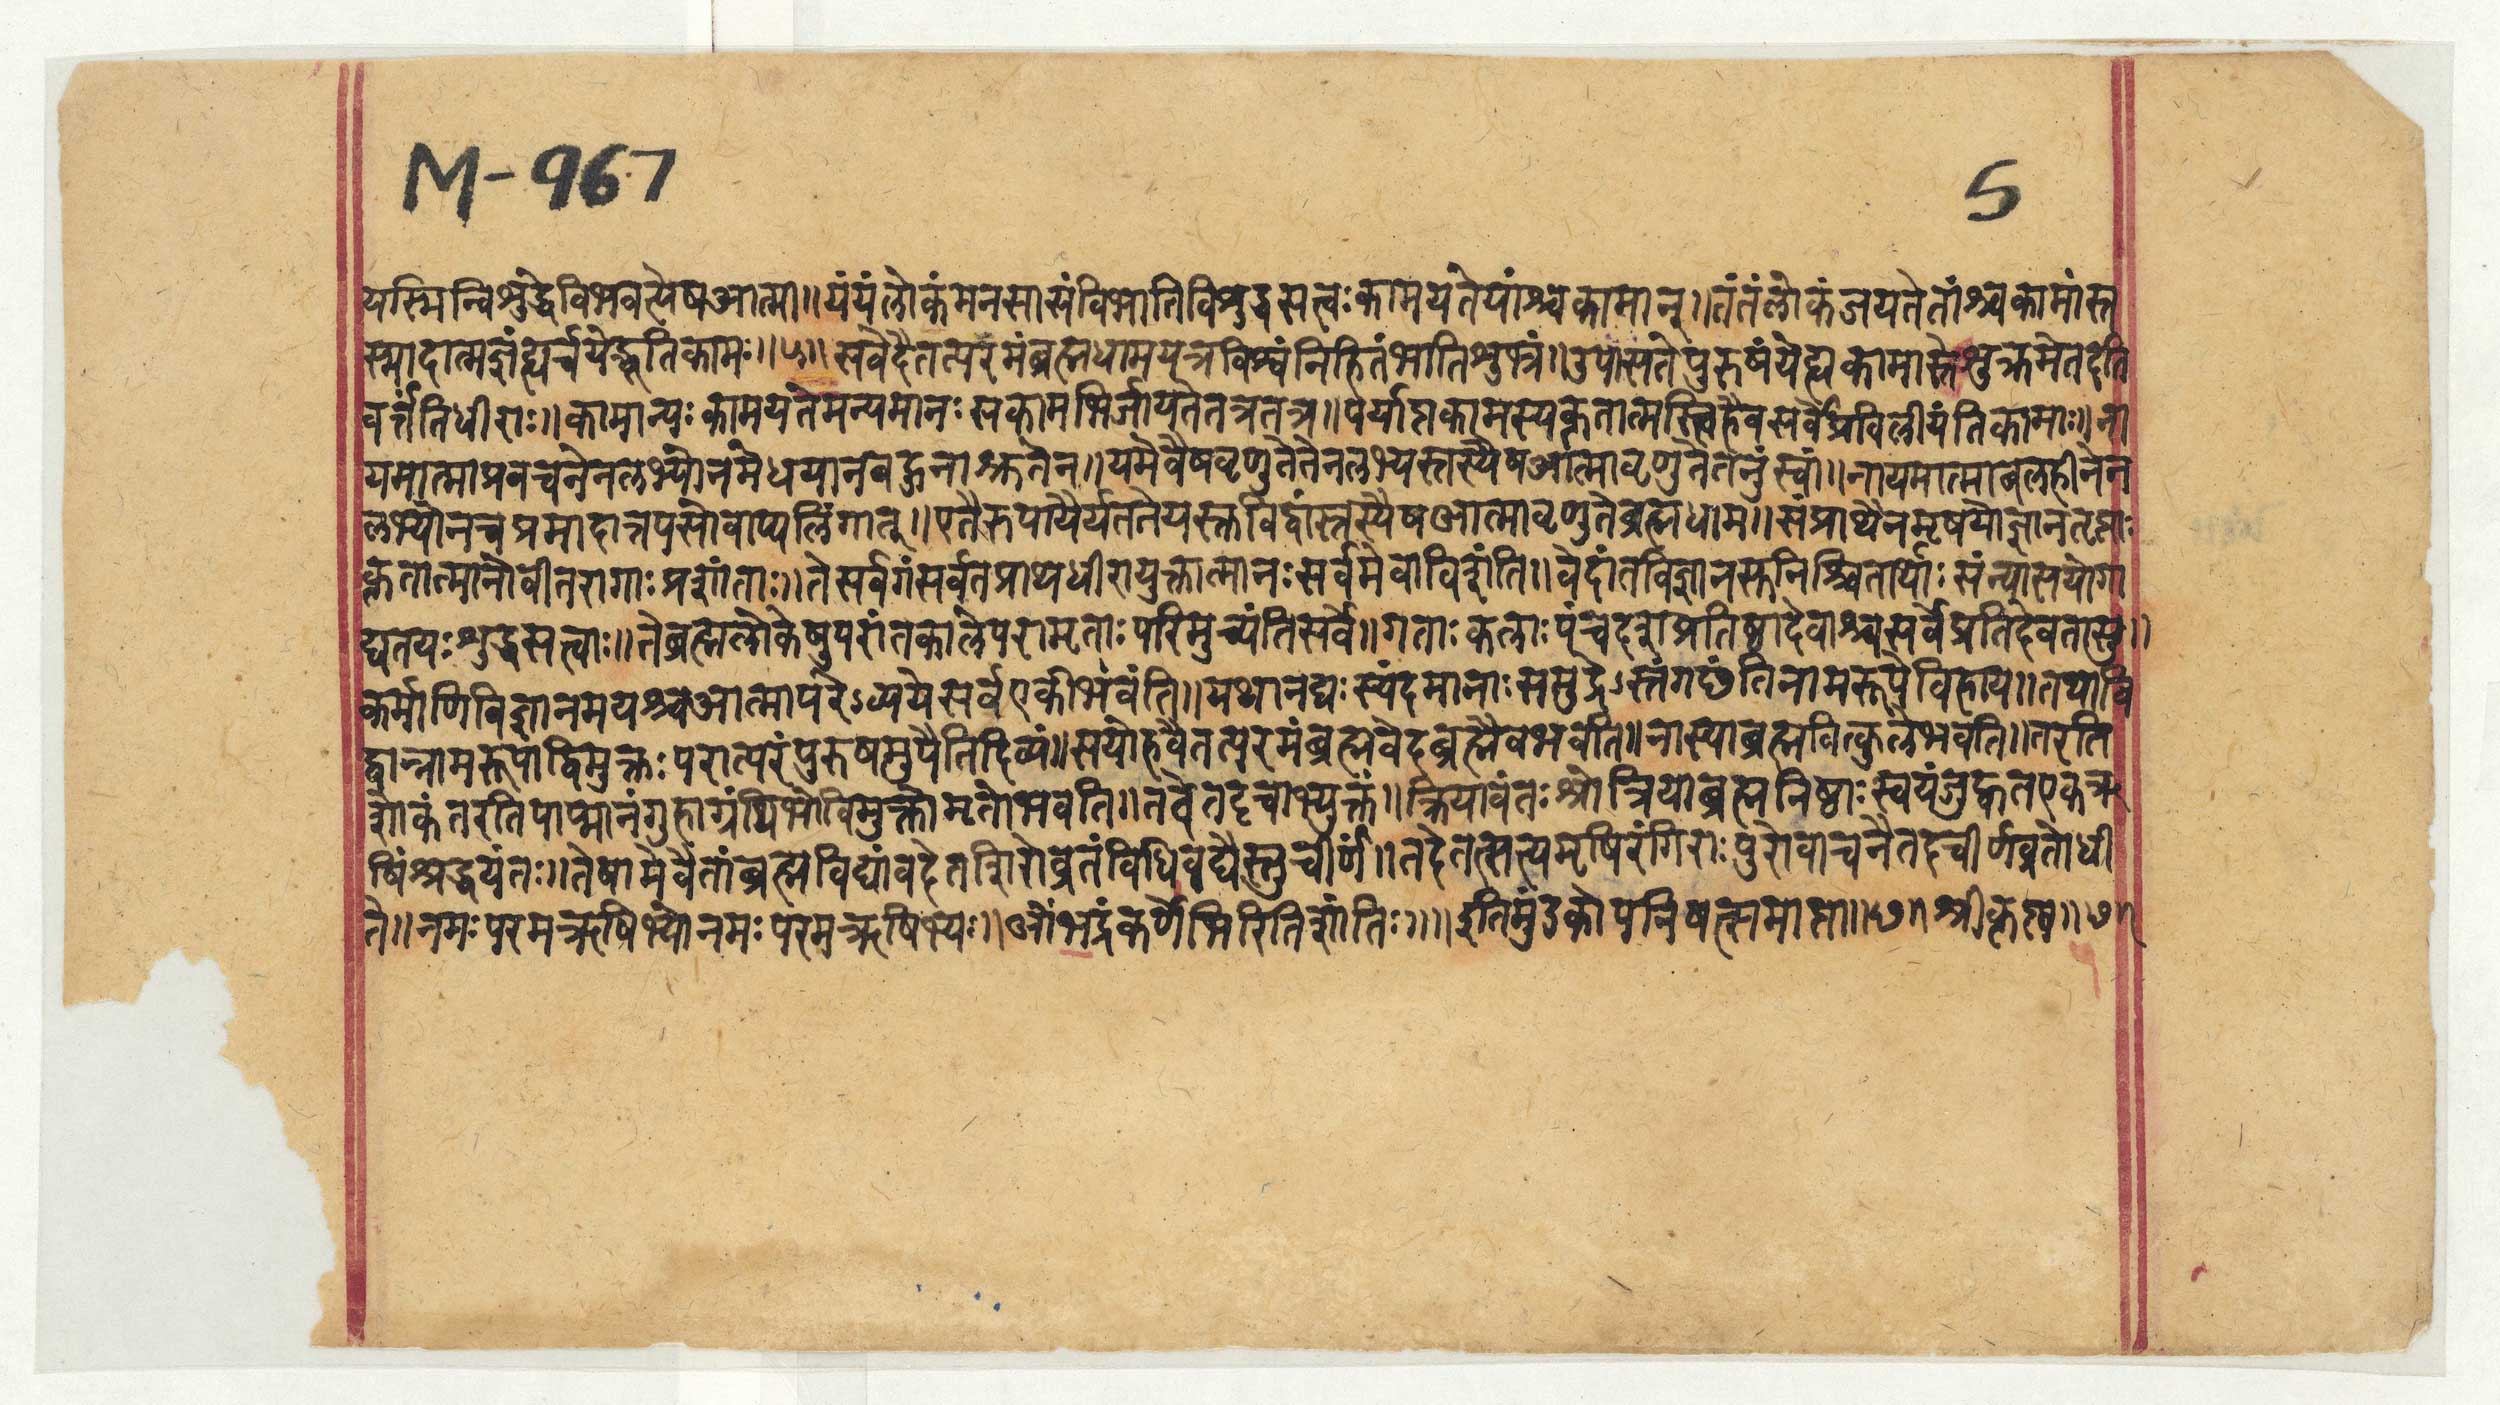 M-967
5
यस्मिन्विशुद्धेविभवत्येषआत्मा॥यंयंलोकंमनसासंविभातिविशुद्धसत्त्वःकामयतेयांश्चकामान्॥तंतंलोकंजयतेतांश्चकामांस्त
स्मादात्मज्ञंह्यर्चयेद्भूतिकामः॥५॥सवेदैतत्परमंब्रह्मधामयत्रविश्वंनिहितंभातिशुभ्रं॥उपासतेपुरुषंयेह्यकामास्तेशुक्रमेतदति
वर्त्तंतिधीराः॥कामान्यःकामयतेमन्यमानःसकामभिर्जायतेतत्रतत्र॥पर्याप्तकामस्यकृतात्मस्त्विहैवसर्वेप्रविलीयंतिकामाः॥ना
यमात्माप्रवचनेनलभ्योनमेधयानबहुनाश्रुतेन॥यमेवैषवृणुतेतेनलभ्यस्तस्यैषआत्मावृणुतेतनुंस्वां॥नायमात्माबलहीनेन
लभ्योनचप्रमादात्तपसोवाप्यलिंगात्॥एतैरुपायैर्यततेयस्तुविद्वांस्तस्यैषआत्मावृणुतेब्रह्मधाम॥संप्राप्यैनमृषयोज्ञानतृप्ताः
कृतात्मानोवीतरागाःप्रशांताः॥तेसर्वगंसर्वतप्राप्यधीरायुक्तात्मानःसर्वमेवाविशंति॥वेदांतविज्ञानसुनिश्चितार्थाःसंन्यासयोगा
द्यतयःशुद्धसत्त्वाः॥तेब्रह्मलोकेषुपरांतकालेपरामृताःपरिमुच्यंतिसर्वे॥गताःकलाःपंचदशप्रतिष्ठादेवाश्चसर्वेप्रतिदेवतासु॥
कर्माणिविज्ञानमयश्चआत्मापरेऽव्ययेसर्वएकीभवंति॥यथानद्यःस्यंदमानाःसमुद्रेऽस्तंगछंतिनामरूपेविहाय॥तथावि
द्वान्नामरूपाद्विमुक्तःपरात्परंपुरुषमुपैतिदिव्यं॥सयोहवैतत्परमंब्रह्मवेदब्रह्मैवभवति॥नास्याब्रह्मवित्कुलेभवति॥तरति
शोकंतरतिपाप्मानंगुहाग्रंथिभ्योविमुक्तोमृतोभवति॥तदेतदृचाभ्युक्तं॥क्रियावंतःश्रोत्रियाब्रह्मनिष्ठाःस्वयंजुह्वतएकऋ
षिंश्रद्धयंतः॥तेषामेवैतांब्रह्मविद्यांवदेतशिरोव्रतंविधिवद्यैस्तुचीर्णं॥तदेतत्सत्यमृषिरंगिराःपुरोवाचनैतदचीर्णव्रतोधी
ते॥नमःपरमऋषिभ्योनमःपरमऋषिभ्यः॥ॐभद्रंकर्णेभिरितिशांतिः॥॥इतिमुंडकोपनिषत्समाप्ता॥७॥श्रीकृष्ण॥७॥